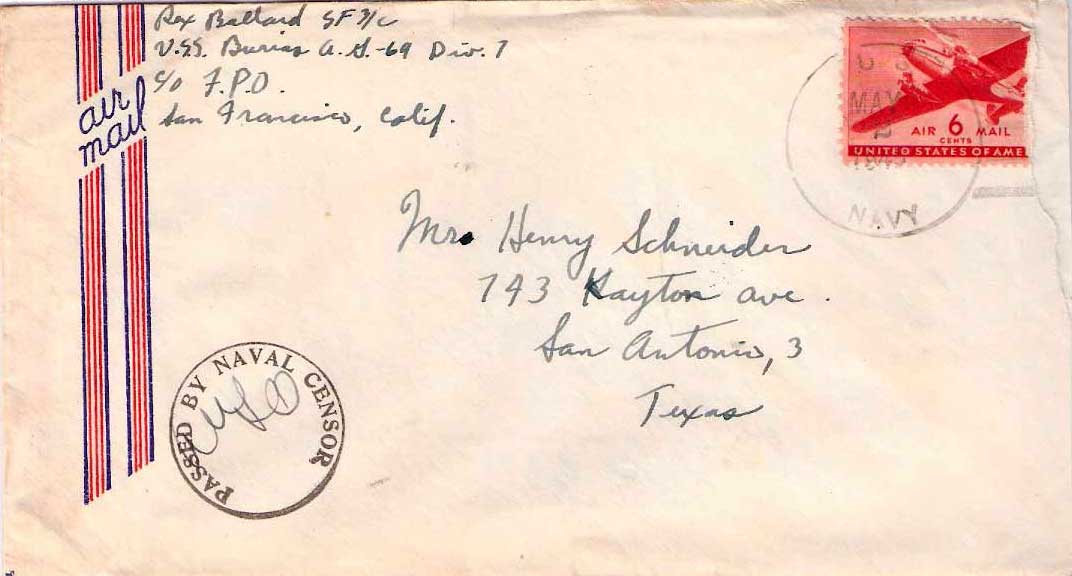 Rex Ballard SF 3/c
U.S.S. Burias A.G.-69 Div. 7
c/o F.P.O.
San Francisco, Calif.
air
mail
MAY
2
NAVY
AIR 6 MAIL
CENTS
UNITED STATES OF AME
Mrs Henry Schneider
743 Hayton ave.
San Antonio, 3
Texas
PASSED BY NAVAL CENSOR